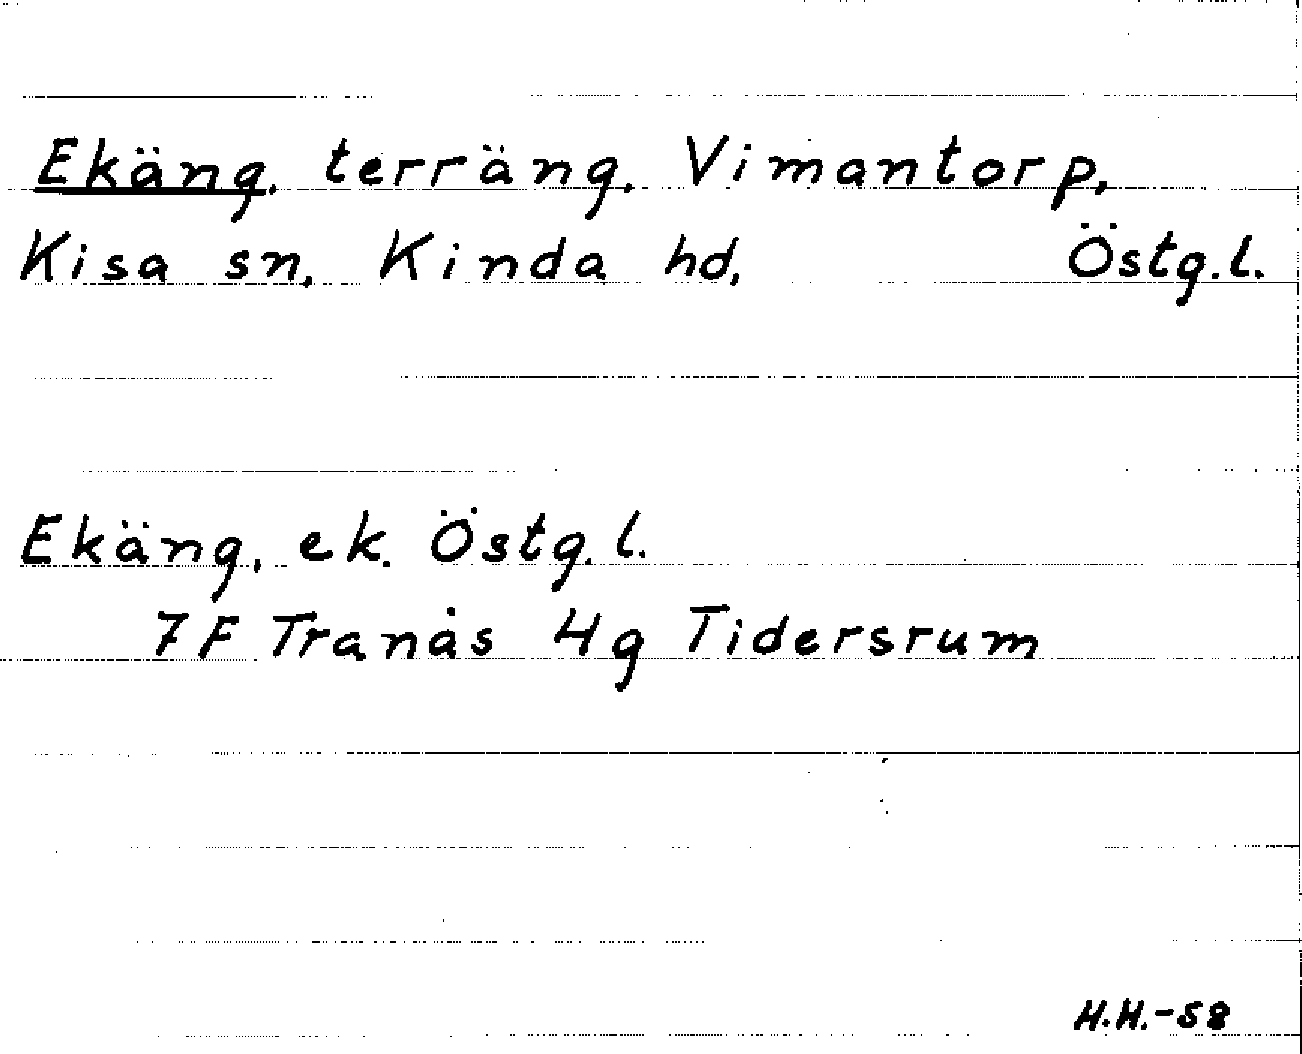 Ekäng, terräng, Vimantorp,
Kisa sn, Kinda hd, Östg.l.
Ekäng, ek. Östg.l.
7F Tranås 4g Tidersrum
H.H.-58